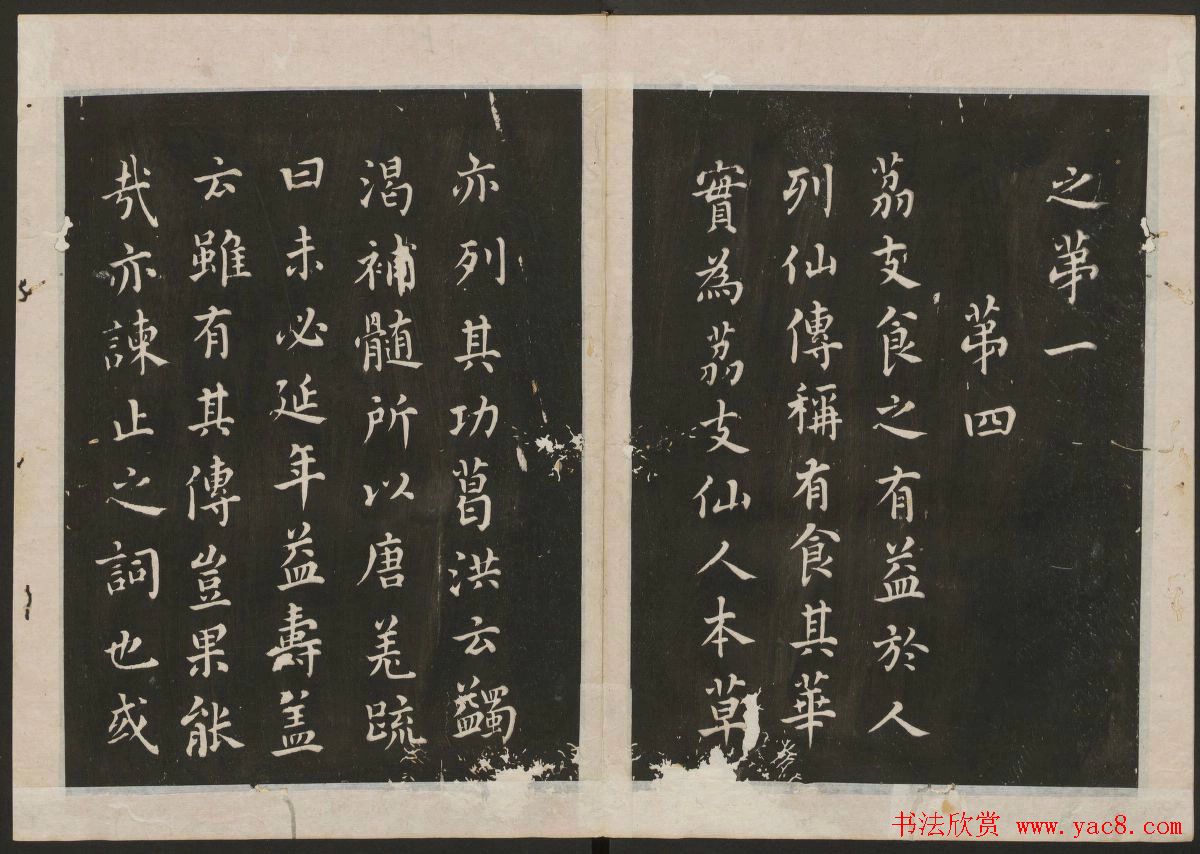 之第一
第四
荔支食之有益於人
列仙傳稱有食其華
實為荔支仙人本草
亦列其功葛洪云蠲
渴補髓所以唐羌疏
曰未必延年益壽蓋
云雖有其傳豈果能
哉亦諫止之詞也或
书法欣赏 www.yac8.com